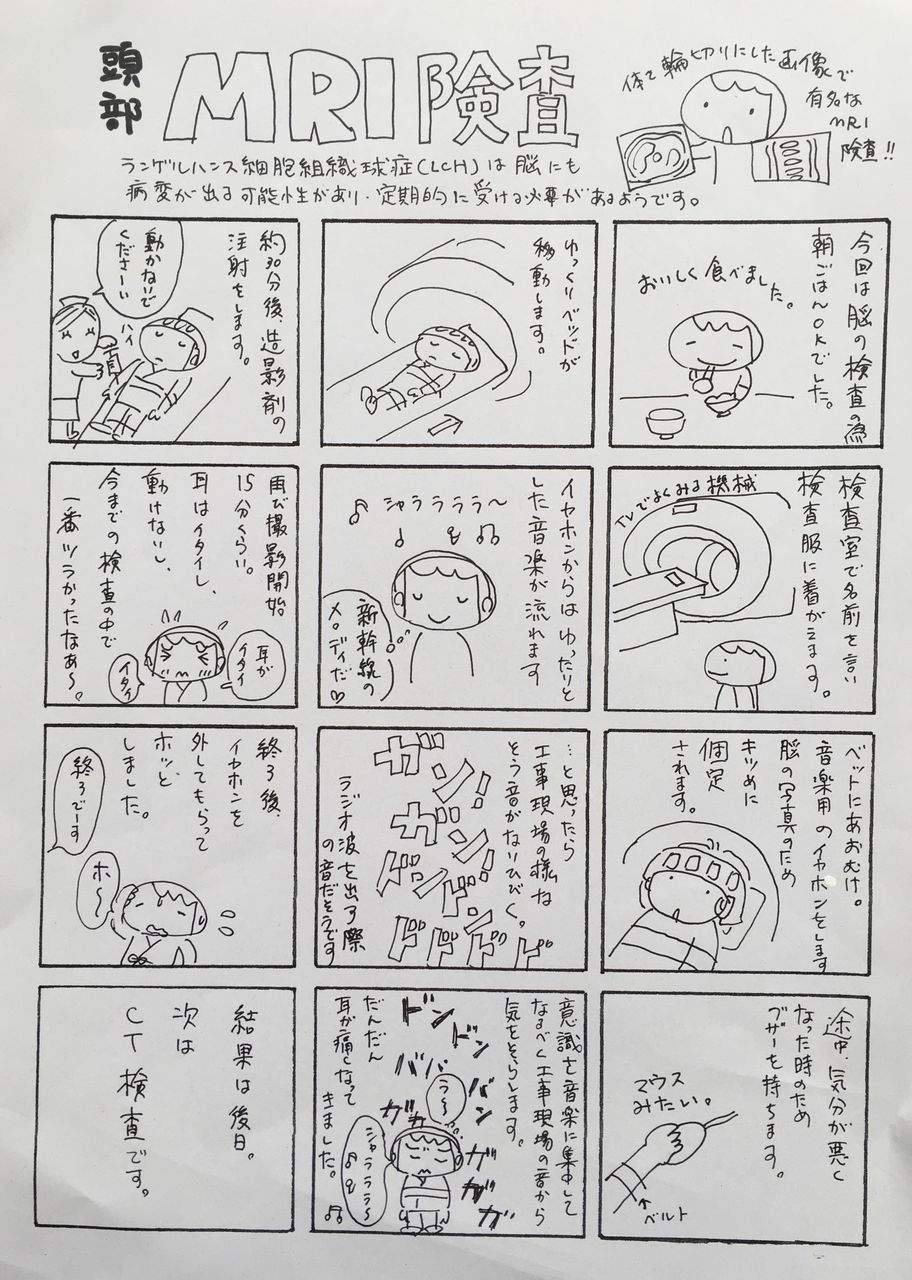 頭部
MRI険査
体を輪切りにした画像で
有名な
MRI
険査!!
ランゲルハンス細胞組織球症(LCH)は脳にも
病変が出る可能性があり、定期的に受ける必要があるようです。
今回は脳の検査の為
朝ごはんOKでした。
おいしく食べました。
検査室で名前を言い
検査服に着がえます。
TVでよくみる機械
ベットにあおむけ。
音楽用のイヤホンをします
脳の写真のため
キツめに
個定
されます。
途中、気分が悪く
なった時のため
ブザーを持ちます。
マウス
みたい。
ベルト
ゆっくりベットが
移動します。
イヤホンからはゆったりと
した音楽が流れます
シャララララ〜
新幹線の
メロディだ♡
…と思ったら
工事現場の様な
そう音がないひびく。
ガン!
ガンガン!
ズンドン
ドドドドド
ラジオ波を出す際
の音だそうです
意識を音楽に集中して
なるべく工事現場の音から
気をそらします。
ドンドン
ババババン
ガガ
ガガガガ
ラ〜
シャラララ〜
だんだん
耳が痛くなって
きました。
約30分後、造影剤の
注射をします。
動かないで
くださーい
ハイ
再び撮影開始
15分くらい。
耳はイタイし、
動けないし、
今までの検査の中で
一番ツラかったなあ〜。
耳が
イタイ
イタイ
終了後、
イヤホンを
外してもらって
ホッと
しました。
終了でーす
ホ〜
結果は後日。
次は
CT検査です。